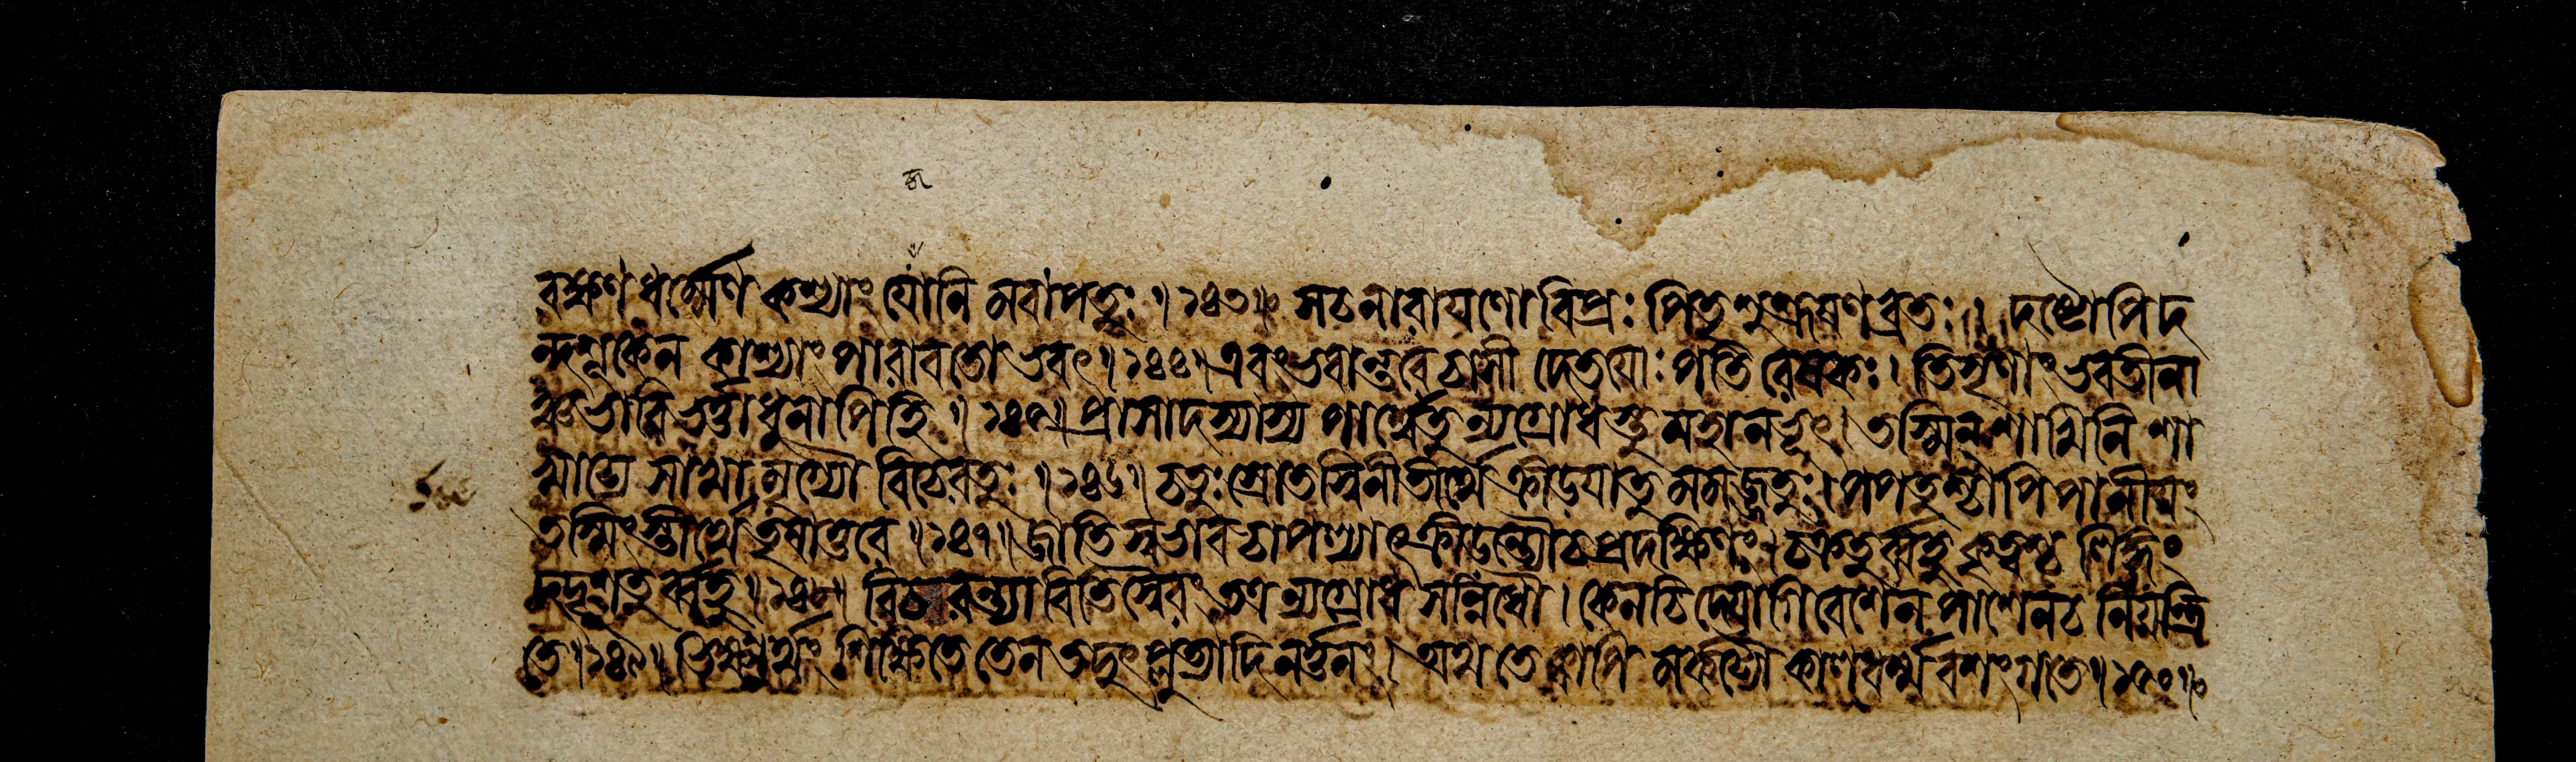 বক্ষণ ধর্ম্মেণ কশ্যাং যোনি মবাপতুঃ ॥১৪৩॥ সচনারাযণো বিপ্রঃ পিতৃশুশ্রূষণব্রতঃ । দষ্টোপিদ
ন্দশূকেন কাশ্যাং পারাবতোভবৎ ॥১৪৪॥ এবংভবান্তরেচাসী দেতযোঃ পতিরেষকঃ। তিসৃণাংভবতীনা
ঞ্চভাবিভর্ত্তাধুনাপিহি ॥১৪৫॥ প্রাসাদস্যাস্য পার্শ্বেতু ন্যগ্রোধস্তু মহানভূৎ। তস্মিন্শাখিনি শা
খাঢ্যে শাখামৃগ্যৌ বিচেরতুঃ ॥১৪৬॥ চতুঃস্রোতস্বিনীতীর্থে ক্রীডযাতু মমজ্জতুঃ। পপতুশ্চাপি পানীযং
তস্মিংস্তীর্থে তৃষাতুরে ॥১৪৭॥ জাতিস্বভাবচাপল্যাৎ ক্রীডন্ত্যৌচ প্রদক্ষিণং। চক্রতুর্ব্বহু কৃত্বশ্চ লিঙ্গং
দদৃশতুর্ব্বহু ॥১৪৮॥ বিচরন্ত্যাবিতিস্বৈরং তত্র ন্যগ্রোধ সন্নিধৌ। কেনচিদ্যোগিবেশেন পাশেনচ নিযন্ত্রি
তে ॥১৪৯॥ ভিক্ষার্থং শিক্ষিতে তেন তদুৎপ্লুত্যাদিনর্ত্তনং। অথ তে ক্বাপি মর্কট্যৌ কালধর্ম্মবশংগতে ॥১৫০॥